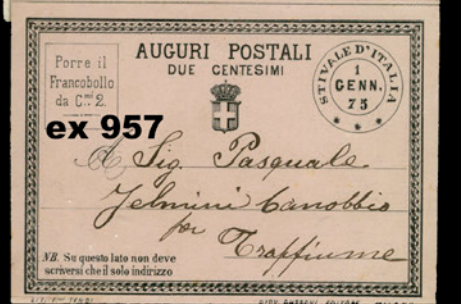 Porre il
Francobollo
da C.mi 2.
AUGURI POSTALI
DUE CENTESIMI
STIVALE D'ITALIA
1
GENN.
75
ex 957
A Sig. Pasquale
Jelmini Canobbio
per
Traffiume
NB. Su questo lato non deve
scriversi che il solo indirizzo